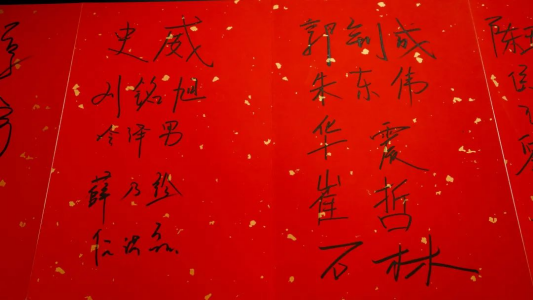 史威
刘铭旭
冷泽男
薛乃
任洪磊
郭剑成
朱东伟
华震
崔哲
石林
陈